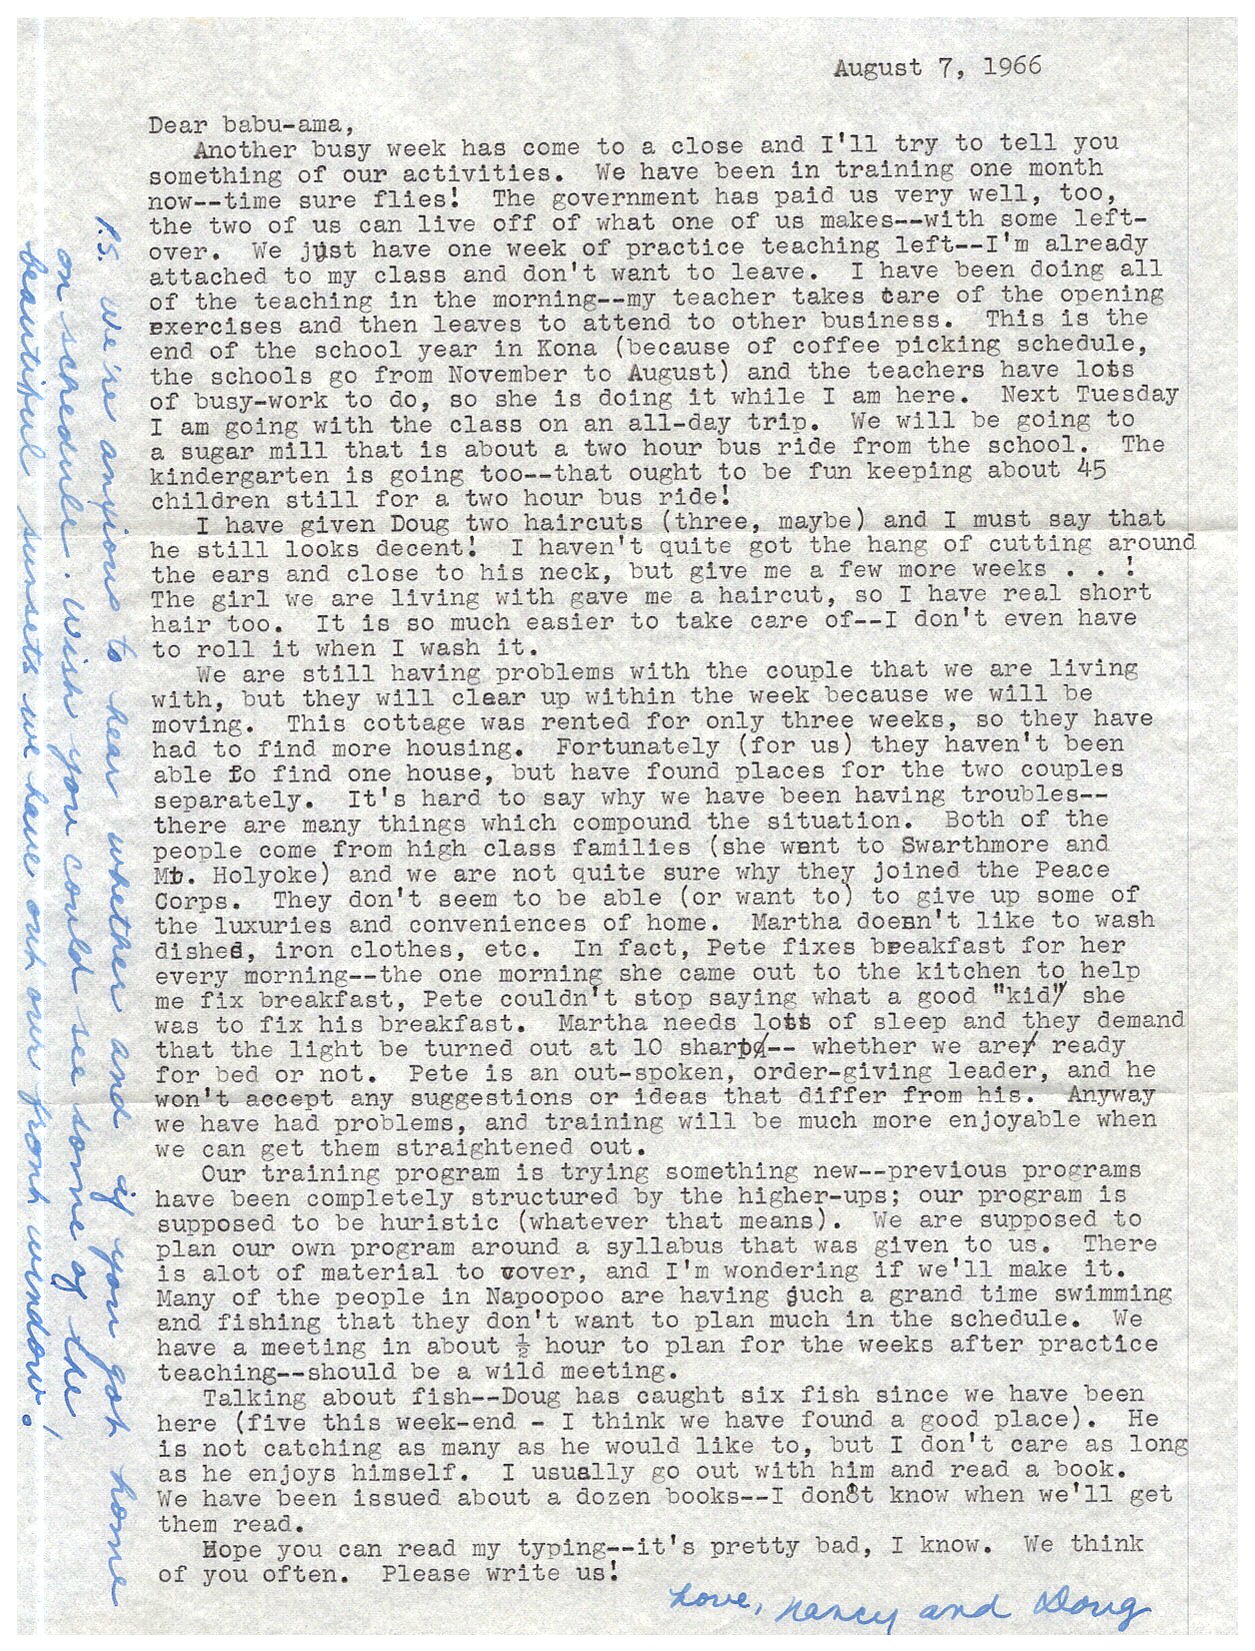 August 7, 1966
Dear babu-ama,
Another busy week has come to a close and I'll try to tell you
something of our activities. We have been in training one month
now--time sure flies! The government has paid us very well, too,
the two of us can live off of what one of us makes--with some left-
over. We just have one week of practice teaching left--I'm already
attached to my class and don't want to leave. I have been doing all
of the teaching in the morning--my teacher takes care of the opening
exercises and then leaves to attend to other business. This is the
end of the school year in Kona (because of coffee picking schedule,
the schools go from November to August) and the teachers have lots
of busy-work to do, so she is doing it while I am here. Next Tuesday
I am going with the class on an all-day trip. We will be going to
a sugar mill that is about a two hour bus ride from the school. The
kindergarten is going too--that ought to be fun keeping about 45
children still for a two hour bus ride!
I have given Doug two haircuts (three, maybe) and I must say that
he still looks decent! I haven't quite got the hang of cutting around
the ears and close to his neck, but give me a few more weeks . . !
The girl we are living with gave me a haircut, so I have real short
hair too. It is so much easier to take care of--I don't even have
to roll it when I wash it.
We are still having problems with the couple that we are living
with, but they will clear up within the week because we will be
moving. This cottage was rented for only three weeks, so they have
had to find more housing. Fortunately (for us) they haven't been
able to find one house, but have found places for the two couples
separately. It's hard to say why we have been having troubles--
there are many things which compound the situation. Both of the
people come from high class families (she went to Swarthmore and
Mt. Holyoke) and we are not quite sure why they joined the Peace
Corps. They don't seem to be able (or want to) to give up some of
the luxuries and conveniences of home. Martha doesn't like to wash
dished, iron clothes, etc. In fact, Pete fixes breakfast for her
every morning--the one morning she came out to the kitchen to help
me fix breakfast, Pete couldn't stop saying what a good "kid" she
was to fix his breakfast. Martha needs lots of sleep and they demand
that the light be turned out at 10 sharp-- whether we are ready
for bed or not. Pete is an out-spoken, order-giving leader, and he
won't accept any suggestions or ideas that differ from his. Anyway
we have had problems, and training will be much more enjoyable when
we can get them straightened out.
Our training program is trying something new--previous programs
have been completely structured by the higher-ups; our program is
supposed to be huristic (whatever that means). We are supposed to
plan our own program around a syllabus that was given to us. There
is alot of material to cover, and I'm wondering if we'll make it.
Many of the people in Napoopoo are having such a grand time swimming
and fishing that they don't want to plan much in the schedule. We
have a meeting in about ½ hour to plan for the weeks after practice
teaching--should be a wild meeting.
Talking about fish--Doug has caught six fish since we have been
here (five this week-end - I think we have found a good place). He
is not catching as many as he would like to, but I don't care as long
as he enjoys himself. I usually go out with him and read a book.
We have been issued about a dozen books--I don8t know when we'll get
them read.
Hope you can read my typing--it's pretty bad, I know. We think
of you often. Please write us!
Love, Nancy and Doug
P.S. We're anxious to hear whether and if you got home
on schedule. Wish you could see some of the
beautiful sunsets we have out our front window!